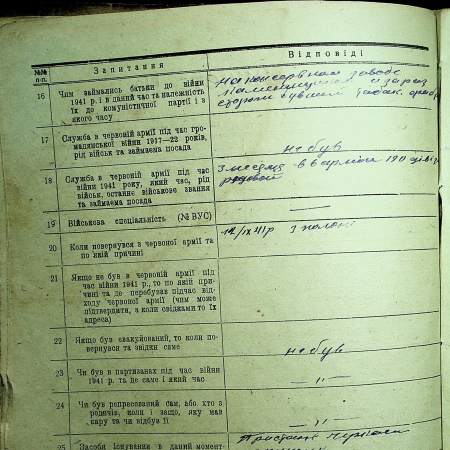 №№ п-п.
Запитання
Відповіді
16
Чим займались батьки до війни
1941 р. і в даний час та належність
їх до комуністичної партії і з
якого часу
на консервном заводе
17
Служба в червоній армії під час гро-
мадянської війни 1917—22 років,
рід військ та займаема посада
не був
18
Служба в червоній армії під час
війни 1941 року, який час, рід
військ, останнє військове звання
та займаема посада
3 месяца в армии 190
рядовой
19
Військова спеціальність (№ ВУС)
—
20
Коли повернувся з червоної армії та
по якій причині
/IX 41 р з
21
Якщо не був в червоній армії під
час війни 1941 р., то по якій при-
чині та де перебував підчас від-
ходу червоної армії (чим може
підтвердити, з коли свідками то їх
адреса)
—
22
Якщо був евакуйований, то коли по-
вернувся та звідки саме
не був
23
Чи був в партизанах під час війни
1941 р. та де саме і який час
— " —
24
Чи був репресований сам, або хто з
родичів, коли і защо, яку мав
кару та чи відбув її
— " —
25
Засоби існування в даний момент